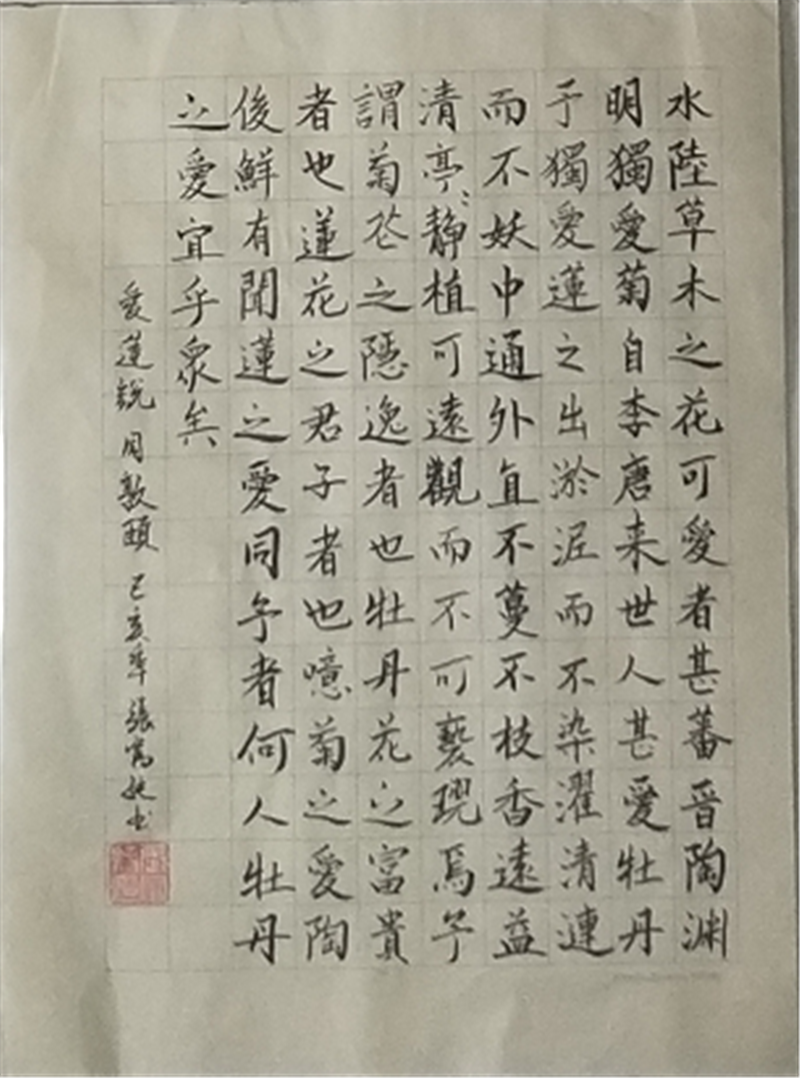 水陸草木之花可愛者甚蕃晉陶渊
明獨愛菊自李唐来世人甚愛牡丹
予獨愛蓮之出淤泥而不染濯清漣
而不妖中通外直不蔓不枝香遠益
清亭〻静植可遠觀而不可褻玩焉予
謂菊花之隱逸者也牡丹花之富貴
者也蓮花之君子者也噫菊之愛陶
後鮮有聞蓮之愛同予者何人牡丹
之愛宜乎眾矣
爱蓮説 周敦頤 己亥年 張书